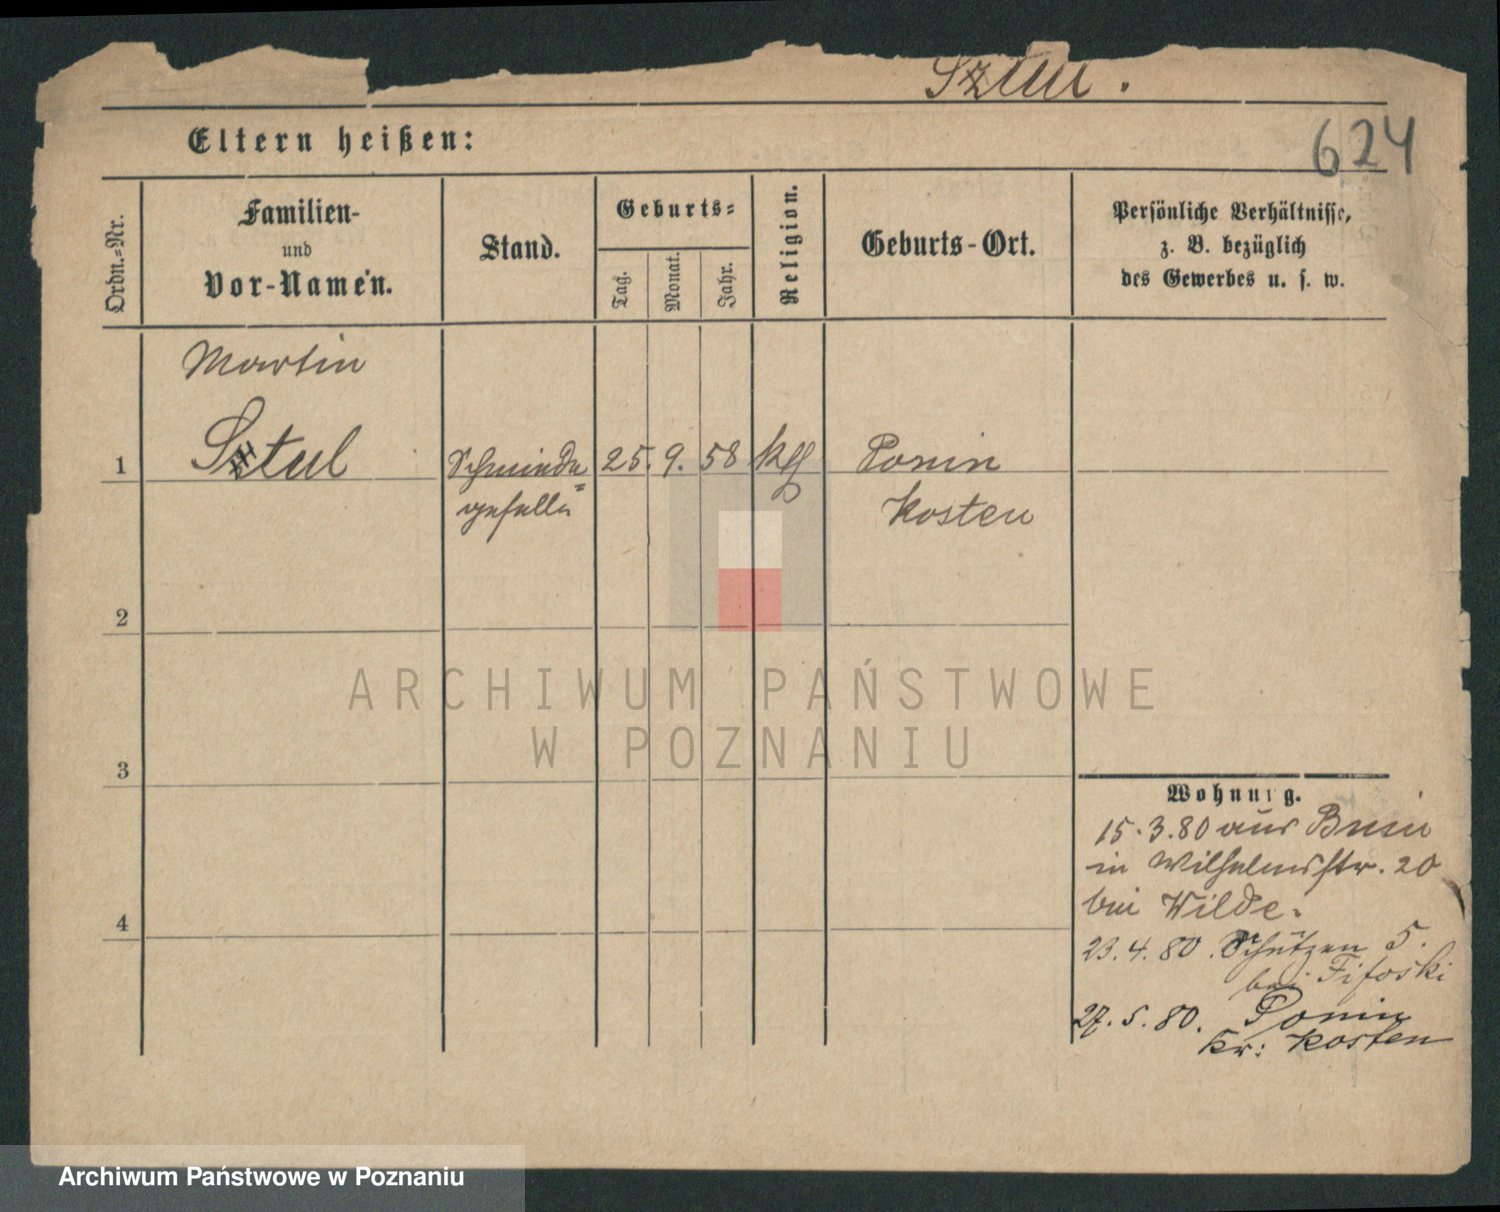 Sztul.
624
Eltern heißen:
Ordn.-Nr.
Familien-
und
Vor-Namen.
Stand.
Geburts-
Tag.
Monat.
Jahr.
Religion.
Geburts-Ort.
Persönliche Verhältnisse,
z. B. bezüglich
des Gewerbes u. s. w.
Martin
1 Sztul Schmiede= 25. 9. 58 kth Ponin
geselle Kosten
2
3
4
Wohnung.
15.3.80 aus Bnin
in Wilhelmsstr. 20
bei Wilde.
23.4.80. Schützen 5.
bei
27.5.80. Ponin
Kr: Kosten
ARCHIWUM PAŃSTWOWE
W POZNANIU
Archiwum Państwowe w Poznaniu